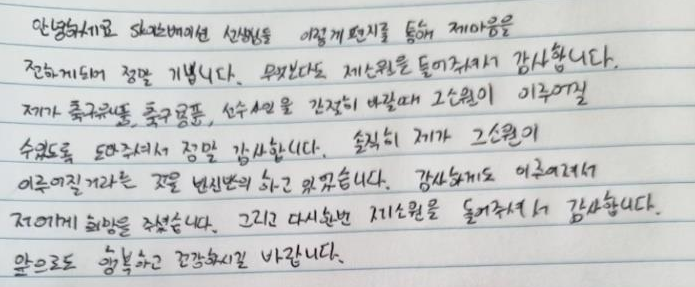 안녕하세요 SK이노베이션 선생님들 이렇게 편지를 통해 제마음을
전하게되어 정말 기쁩니다. 무엇보다도 제소원을 들어주셔서 감사합니다.
제가 축구유니폼, 축구용품, 선수사인을 간절히 바랄때 그소원이 이루어질
수있도록 도와주셔서 정말 감사합니다. 솔직히 제가 그소원이
이루어질거라는 것을 반신반의 하고 있었습니다. 감사하게도 이루어져서
저에게 희망을 주셨습니다. 그리고 다시한번 제소원을 들어주셔서 감사합니다.
앞으로도 행복하고 건강하시길 바랍니다.